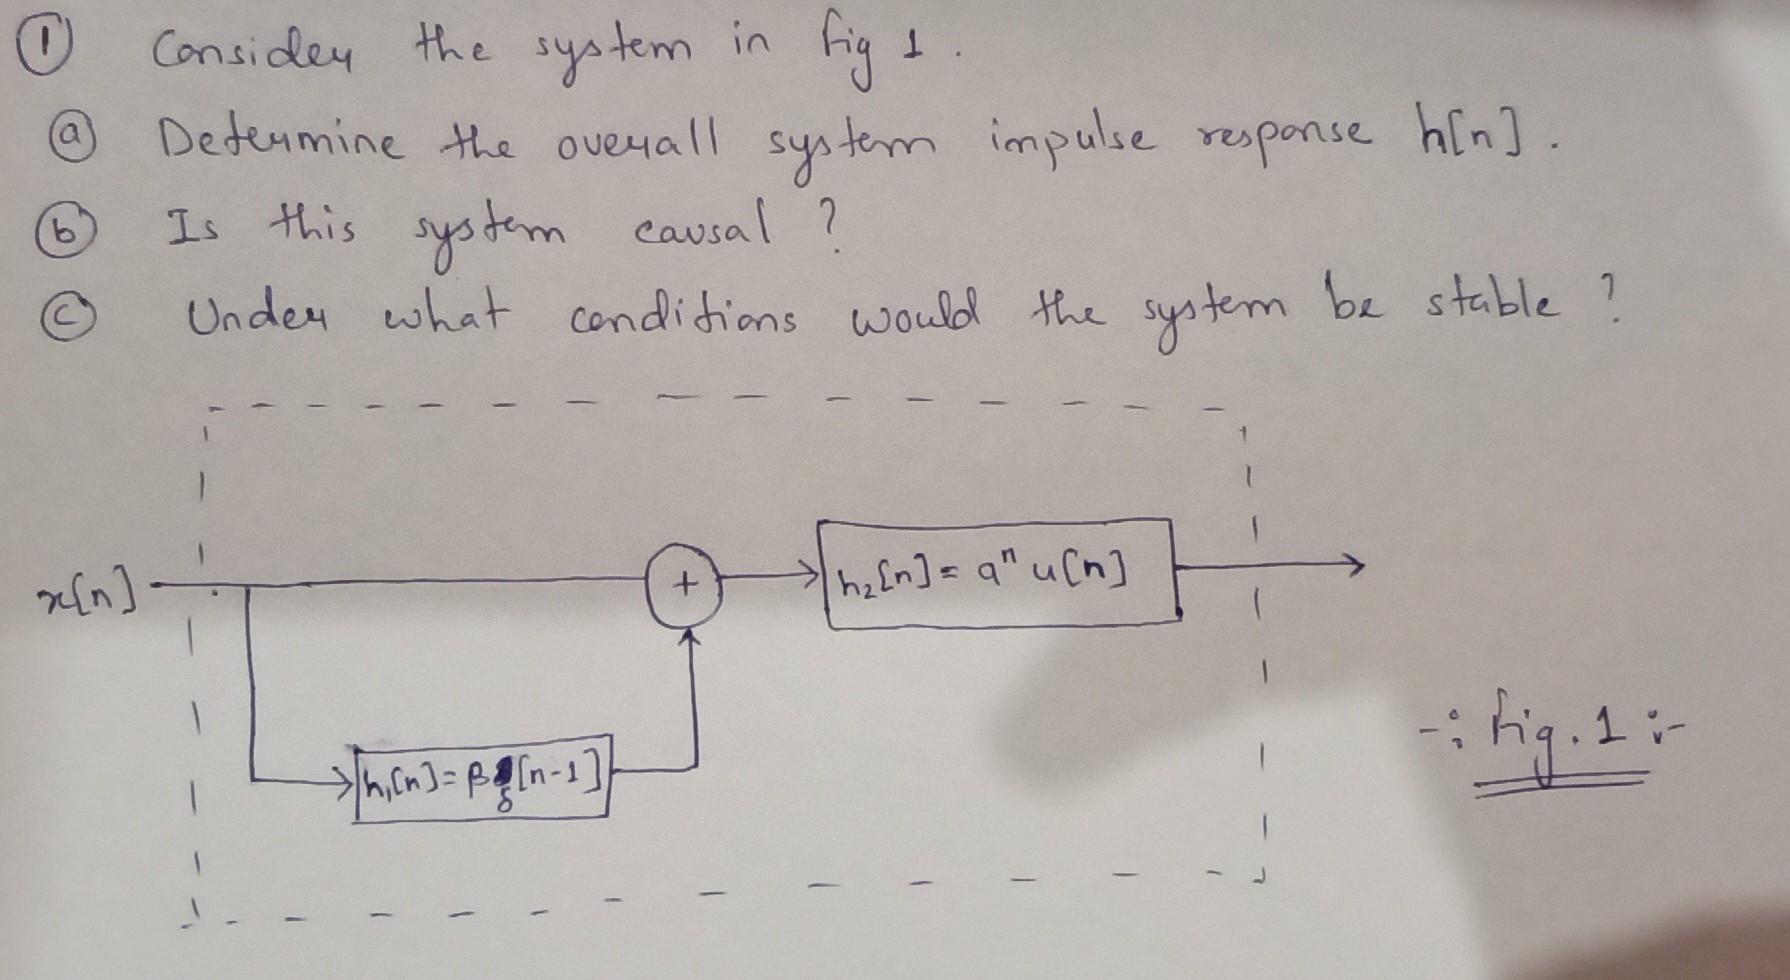 ① Consider the system in fig 1.
ⓐ Determine the overall system impulse response h[n].
ⓑ Is this system causal ?
ⓒ Under what conditions would the system be stable ?
x[n]
+
h₂[n] = aⁿ u[n]
h₁[n] = β δ[n-1]
-: fig. 1 :-